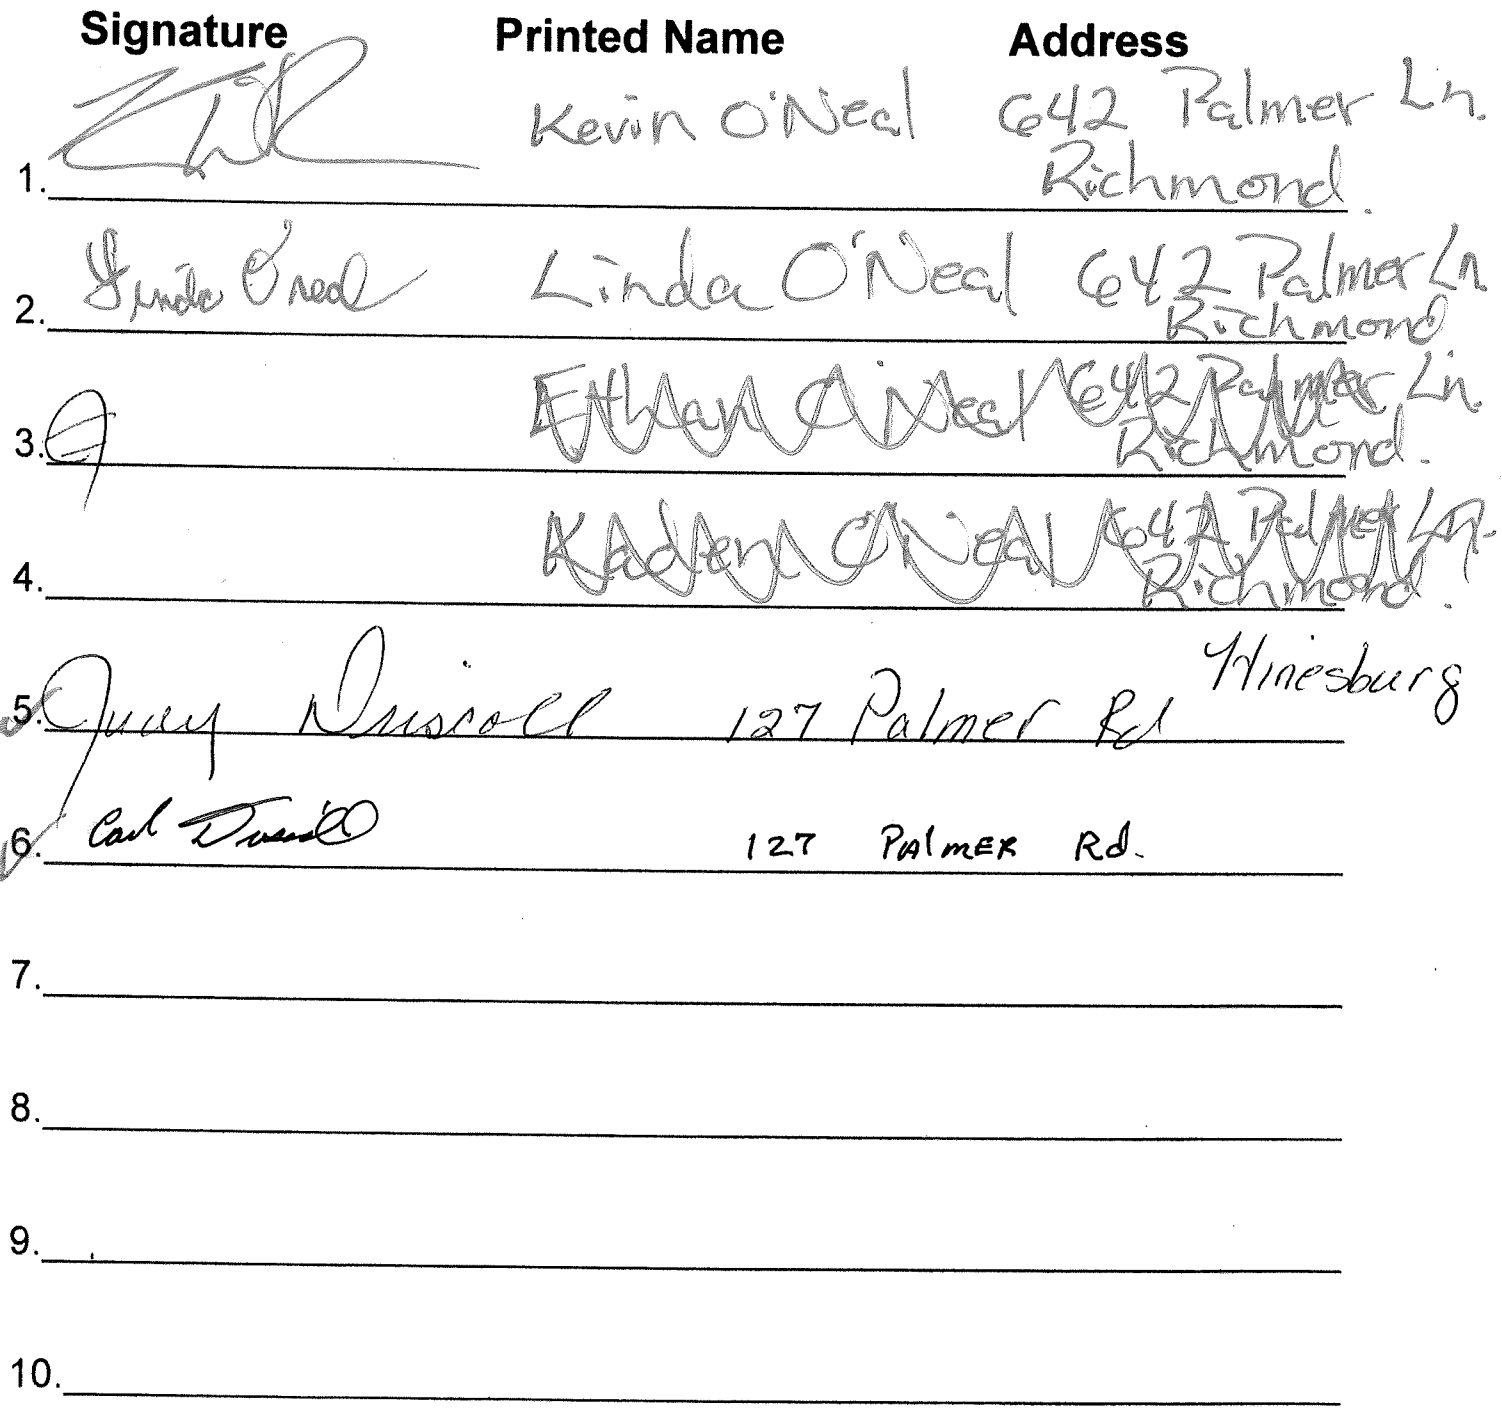 Signature Printed Name Address
1. Kevin O'Neal 642 Palmer Ln.
Richmond.
2. Linda O'Neal Linda O'Neal 642 Palmer Ln
Richmond
3. Ethan O'Neal 642 Palmer Ln.
Richmond.
4. Kaden O'Neal 642 Palmer Ln.
Richmond.
5. Judy Driscoll 127 Palmer Rd Hinesburg
6. Carl Driscoll 127 Palmer Rd.
7.
8.
9.
10.